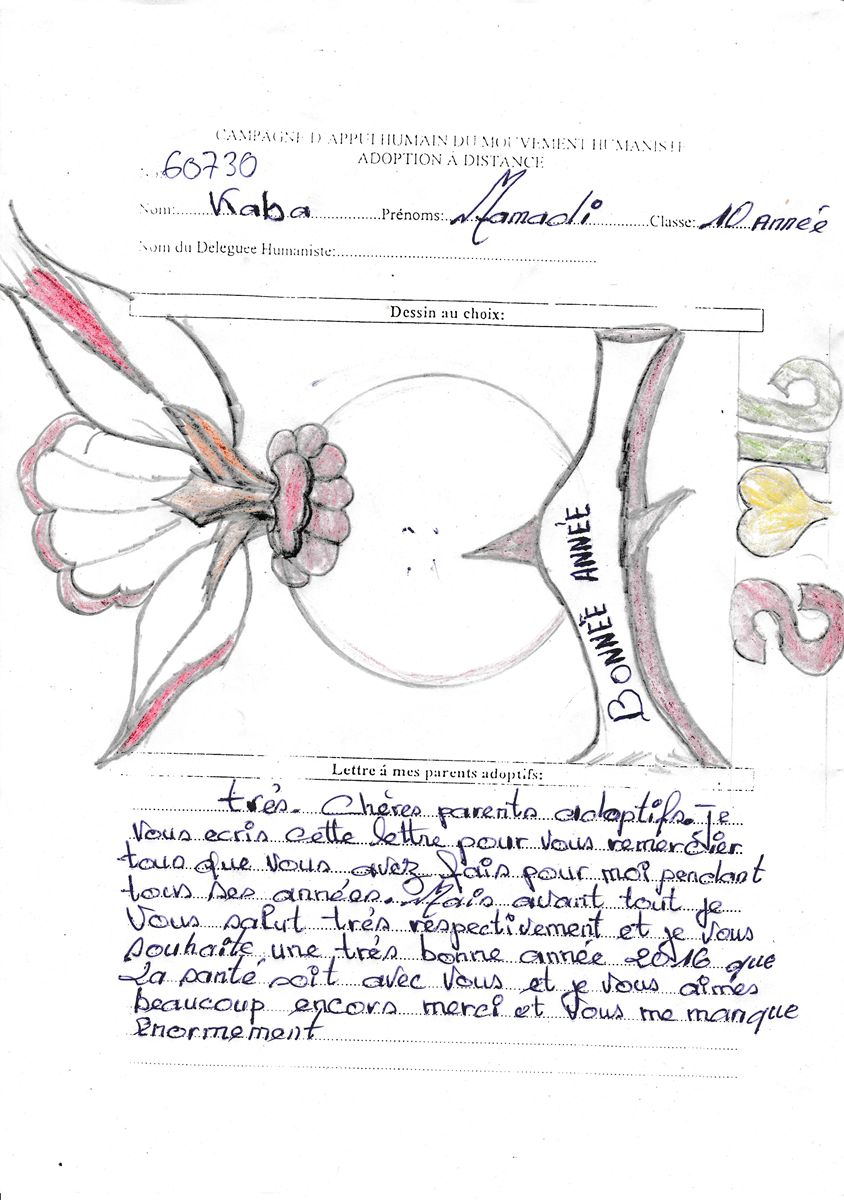 CAMPAGNE D'APPUI HUMAIN DU MOUVEMENT HUMANISTE
ADOPTION À DISTANCE
60730
Nom: Kaba Prénoms: Mamadi Classe: 10 Année
Nom du Deleguee Humaniste:
Dessin au choix:
BONNÉE ANNÉE
2016
Lettre á mes parents adoptifs:
trés. Chères parents adoptifs. Je
Vous ecris cette lettre pour vous remercier
tous que vous avez fais pour moi pendant
tous ses années. Mais avant tout je
Vous salut trés respectivement et je vous
souhaite une trés bonne année 2016 que
La santé soit avec vous et je vous aimes
beaucoup encors merci et vous me manque
Enormement